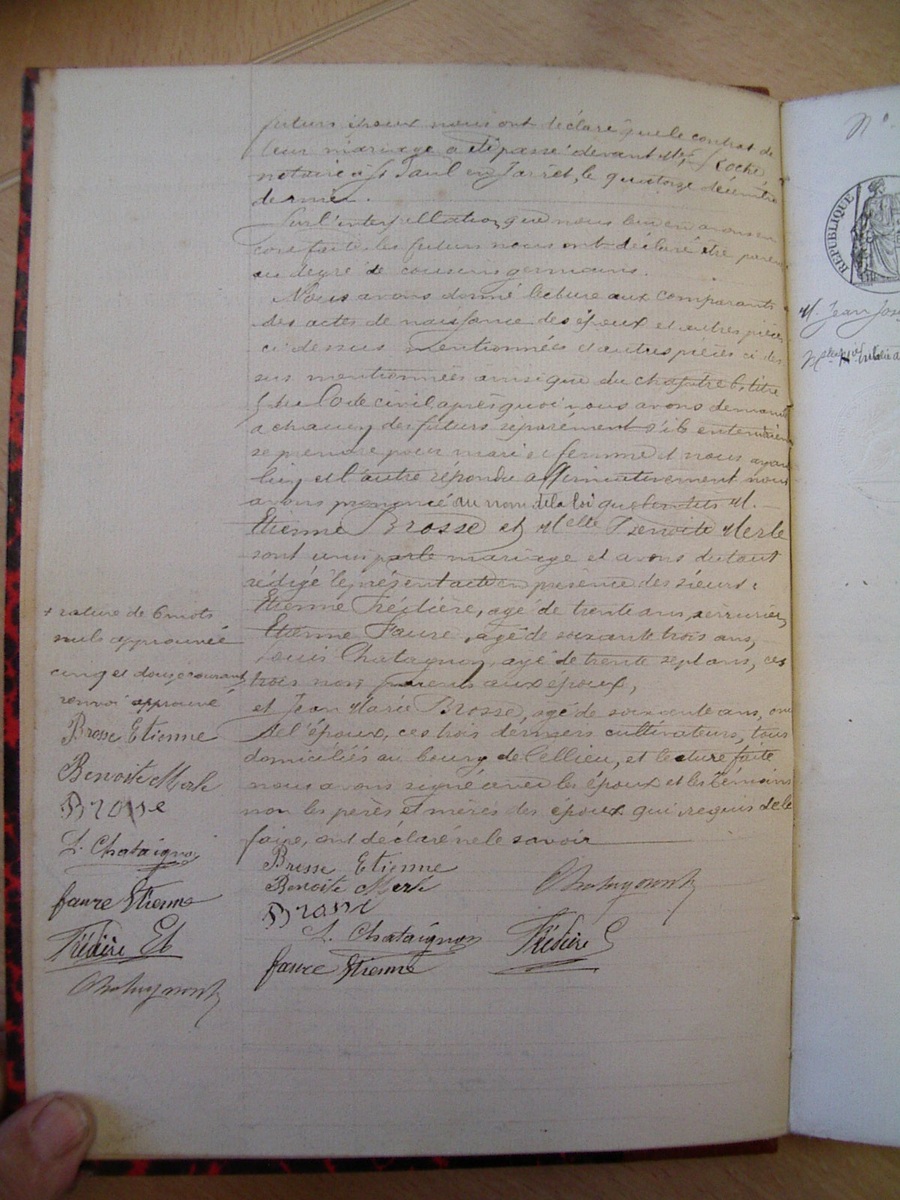 futurs époux nous ont déclaré que le contrat de
leur mariage a été passé devant Me Roche
notaire à St Paul en Jarret, le quatorze décembre
dernier.
Sur l'interpellation que nous leur en avons en
core faites les futurs nous ont déclaré être parents
au degré de cousins germains.
Nous avons donné lecture aux comparants
des actes de naissance des époux et autres pièces
ci dessus mentionnées et autres pièces ci des
sus mentionnées ainsi que du chapitre 6, titre
5 du Code civil, après quoi nous avons demandé
a chacun des futurs séparement s'ils entendaient
se prendre pour mari et femme et nous ayant
l'un et l'autre répondu affirmativement nous
avons prononcé au nom de la loi que M.
Etienne Brosse et Melle Benoite Merle
sont unis par le mariage et avons du tout
rédigé le présent acte en présence des sieurs :
Etienne Frédière, agé de trente ans, serrurier,
Etienne Faure, agé de soixante trois ans,
Louis Chatagnon, agé de trente sept ans, ces
trois non parents aux époux,
et Jean Marie Brosse, agé de soixante ans, oncle
de l'époux, ces trois derniers cultivateurs, tous
domiciliés au bourg de Cellieu, et lecture faite
nous avons signé avec les époux et les témoins
non les pères et mères des époux qui requis de le
faire, ont déclaré ne le savoir
Brosse Etienne
Benoite Merle
Brosse
L. Chataignon
Faure Etienne
Frédière E
+ rature de 6 mots
nuls approuvée
cinq et douze courant
renvoi approuvé
Brosse Etienne
Benoite Merle
Brosse
L. Chataignon
faure Etienne
Frédière Et
N°
RÉPUBLIQUE
M. Jean Jos